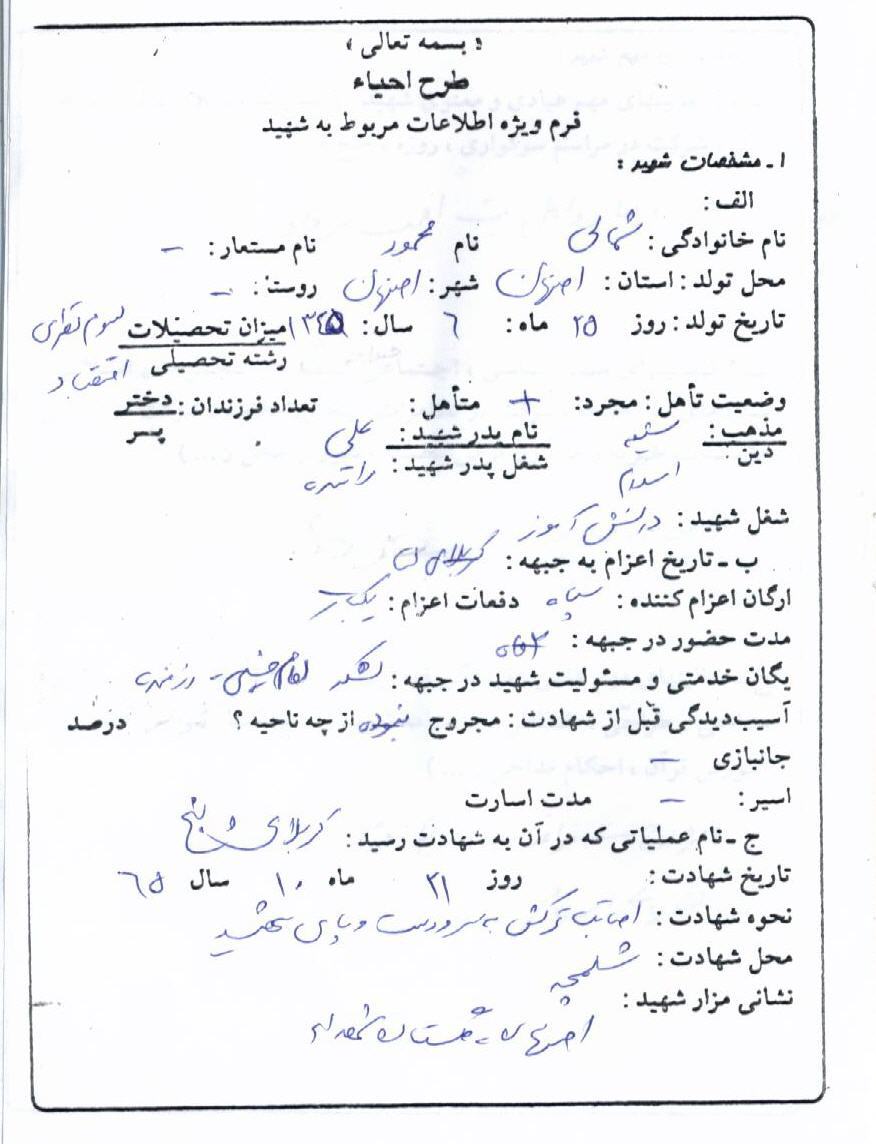 « بسمه تعالی »
طرح احیاء
فرم ویژه اطلاعات مربوط به شهید
۱ ـ مشخصات شهید :
الف :
نام خانوادگی : شمالی نام محمود نام مستعار : –
محل تولد : استان : اصفهان شهر : اصفهان روستا : –
تاریخ تولد : روز ۲۵ ماه : ۶ سال : ۱۳۴۵ میزان تحصیلات سوم نظری
رشته تحصیلی اقتصاد
وضعیت تأهل : مجرد : + متأهل : تعداد فرزندان : دختر
پسر
مذهب : شیعه نام پدر شهید : علی
دین اسلام شغل پدر شهید : راننده
شغل شهید : دانش آموز
ب ـ تاریخ اعزام به جبهه : کربلای
ارگان اعزام کننده : سپاه دفعات اعزام : یکبار
مدت حضور در جبهه :
یگان خدمتی و مسئولیت شهید در جبهه : لشکر امام خمینی - رزمنده
آسیب‌دیدگی قبل از شهادت : مجروح نبوده از چه ناحیه ؟ درصد
جانبازی –
اسیر : – مدت اسارت
ج ـ نام عملیاتی که در آن به شهادت رسید : کربلای پنج
تاریخ شهادت : روز ۲۱ ماه ۱۰ سال ۶۵
نحوه شهادت : اصابت ترکش به سر و دست و پای شهید
محل شهادت : شلمچه
نشانی مزار شهید :
اصفهان - گلستان شهداء